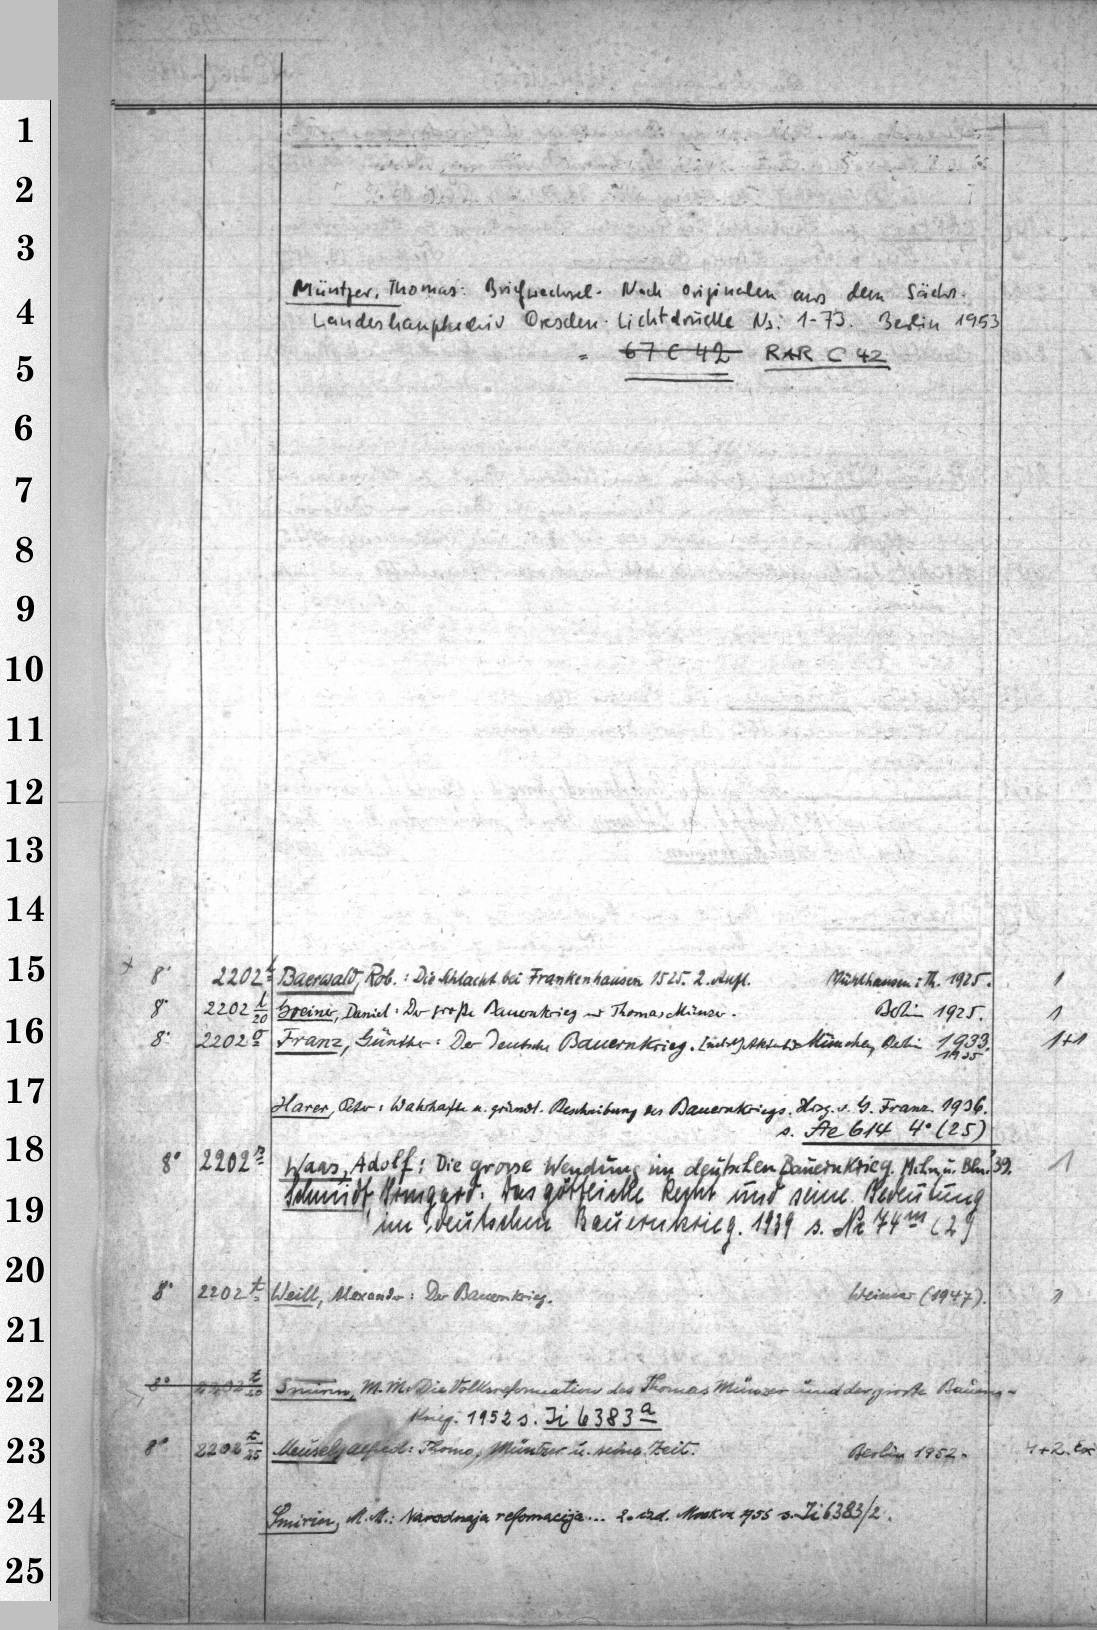 Müntzer, Thomas: Briefwechsel. Nach Originalen aus dem Sächs.
Landeshauptarchiv Dresden. Lichtdrucke Nr: 1-73. Berlin 1953
= 67 C 42 RAR C 42
8° 2202 Baerwald, Rob.: Die Schlacht bei Frankenhausen 1525. 2. Aufl. Mühlhausen i. Th. 1925. 1
8° 2202 l/20 Greiner, Daniel: Der große Bauernkrieg und Thomas Münzer. Berlin 1925. 1
8° 2202 o Franz, Günther: Der Deutsche Bauernkrieg. München, Berlin 1933. 1+1
1935
Harer, Peter: Wahrhafte u. gründl. Beschreibung des Bauernkriegs. Hrsg. v. G. Franz. 1936.
s. Ae 614 4° (25)
8° 2202 Waas, Adolf: Die grosse Wendung im deutschen Bauernkrieg. Mchn u. Bln. '39. 1
Schmidt, Irmgard: Das göttliche Recht und seine Bedeutung
im deutschen Bauernkrieg. 1939 s. Nz 74 m (2)
8° 2202 t Weill, Alexander: Der Bauernkrieg. Weimar (1947). 1
8° 2202 t/20 Smirin, M. M. Die Volksreformation des Thomas Münzer und der große Bauern-
krieg. 1952 s. Ji 6383 a
8° 2202 t/25 Meusel, Alfred: Thomas Müntzer u. seine Zeit. Berlin 1952. 1+2. Ex
Smirin, M. M.: Narodnaja reformacija... 2. izd. Moskva 1955 s. Ji 6383/2.
1
2
3
4
5
6
7
8
9
10
11
12
13
14
15
16
17
18
19
20
21
22
23
24
25